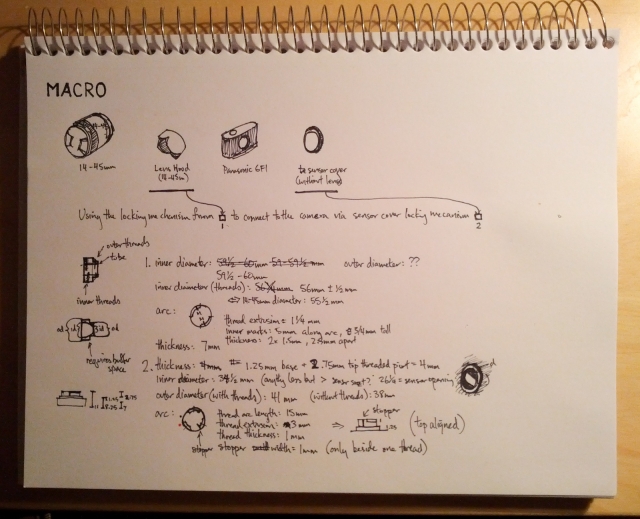 MACRO
14-45mm
Lens Hood
(14-45mm)
Panasonic GF1
sensor cover
(without lens)
Using the locking mechanism from 1 to connect to the camera via sensor cover locking mechanism 2
outer threads
tube
inner threads
1. inner diameter: 59½ - 60mm 59-59½ mm outer diameter: ??
59½ - 60mm
inner diameter (threads): 56mm 56mm ± ½mm
14-45mm diameter: 55½mm
arc:
thread extrusion ± 1¼ mm
inner marks: 5mm along arc, 5¼mm tall
thickness: 2x 1.5mm, apart
thickness: 7mm
id
od
requires buffer
space
2. thickness: 4mm 1.25mm base + 2.75mm top threaded part = 4mm
inner diameter: 34½ mm (anything less but > sensor 26¼ = sensor opening)
outer diameter (with threads): 41mm (without threads): 38mm
arc:
thread arc length: 15mm
thread extrusion: 3mm
thread thickness: 1mm
stopper
1.25
(top aligned)
stopper
stopper width = 1mm (only beside one thread)